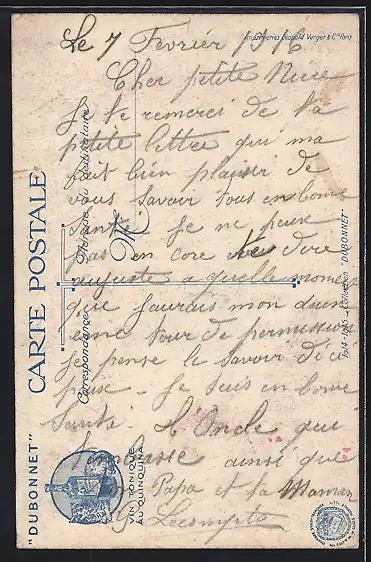 Le 7 Fevrier 1916
Imprimeries Léopold Verger & Cie Paris
Cher petite Niece
Je te remerci de ta
petite lettre qui ma
fait bien plaisir de
vous savoir tous en bonne
sante Je ne peux
pas en core te dire
auguste a quelle moment
que jaurais mon
tour de permission
je pense le savoir d'ici
peux. Je suis en bonne
Santé. L'Oncle qui
ainsi que
Papa et ta Maman
Lecompte
"DUBONNET"
CARTE POSTALE
Correspondance
Adresse du Destinataire
M
VIN TONIQUE
AU QUINQUINA
1914-1915 - Collection "DUBONNET"